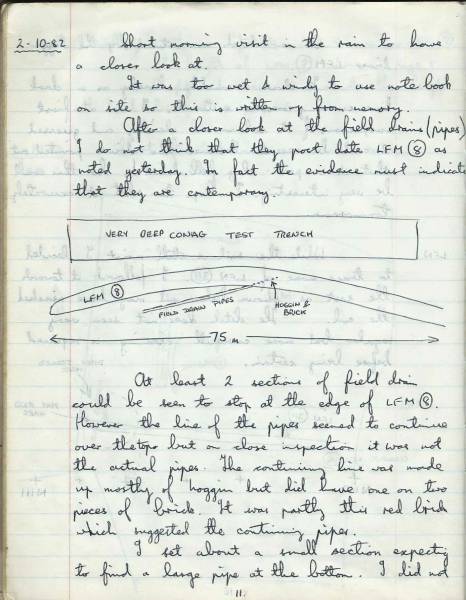 2-10-82 Short morning visit in the rain to have
a closer look at.
It was too wet & windy to use note book
on site so this is written up from memory.
After a closer look at the field drains (pipes)
I do not think that they post date LFM ⑧ as
noted yesterday. In fact the evidence must indicate
that they are contemporary.
VERY DEEP CONAG TEST TRENCH
LFM ⑧
FIELD DRAIN PIPES
HOGGIN &
BRICK
75 m
At least 2 sections of field drain
could be seen to stop at the edge of LFM ⑧.
However the line of the pipes seemed to continue
over the top but on close inspection it was not
the actual pipes. The continuing line was made
up mostly of hoggin but did have one or two
pieces of brick. It was partly this red brick
which suggested the continuing pipes.
I set about a small section expecting
to find a large pipe at the bottom. I did not
11.